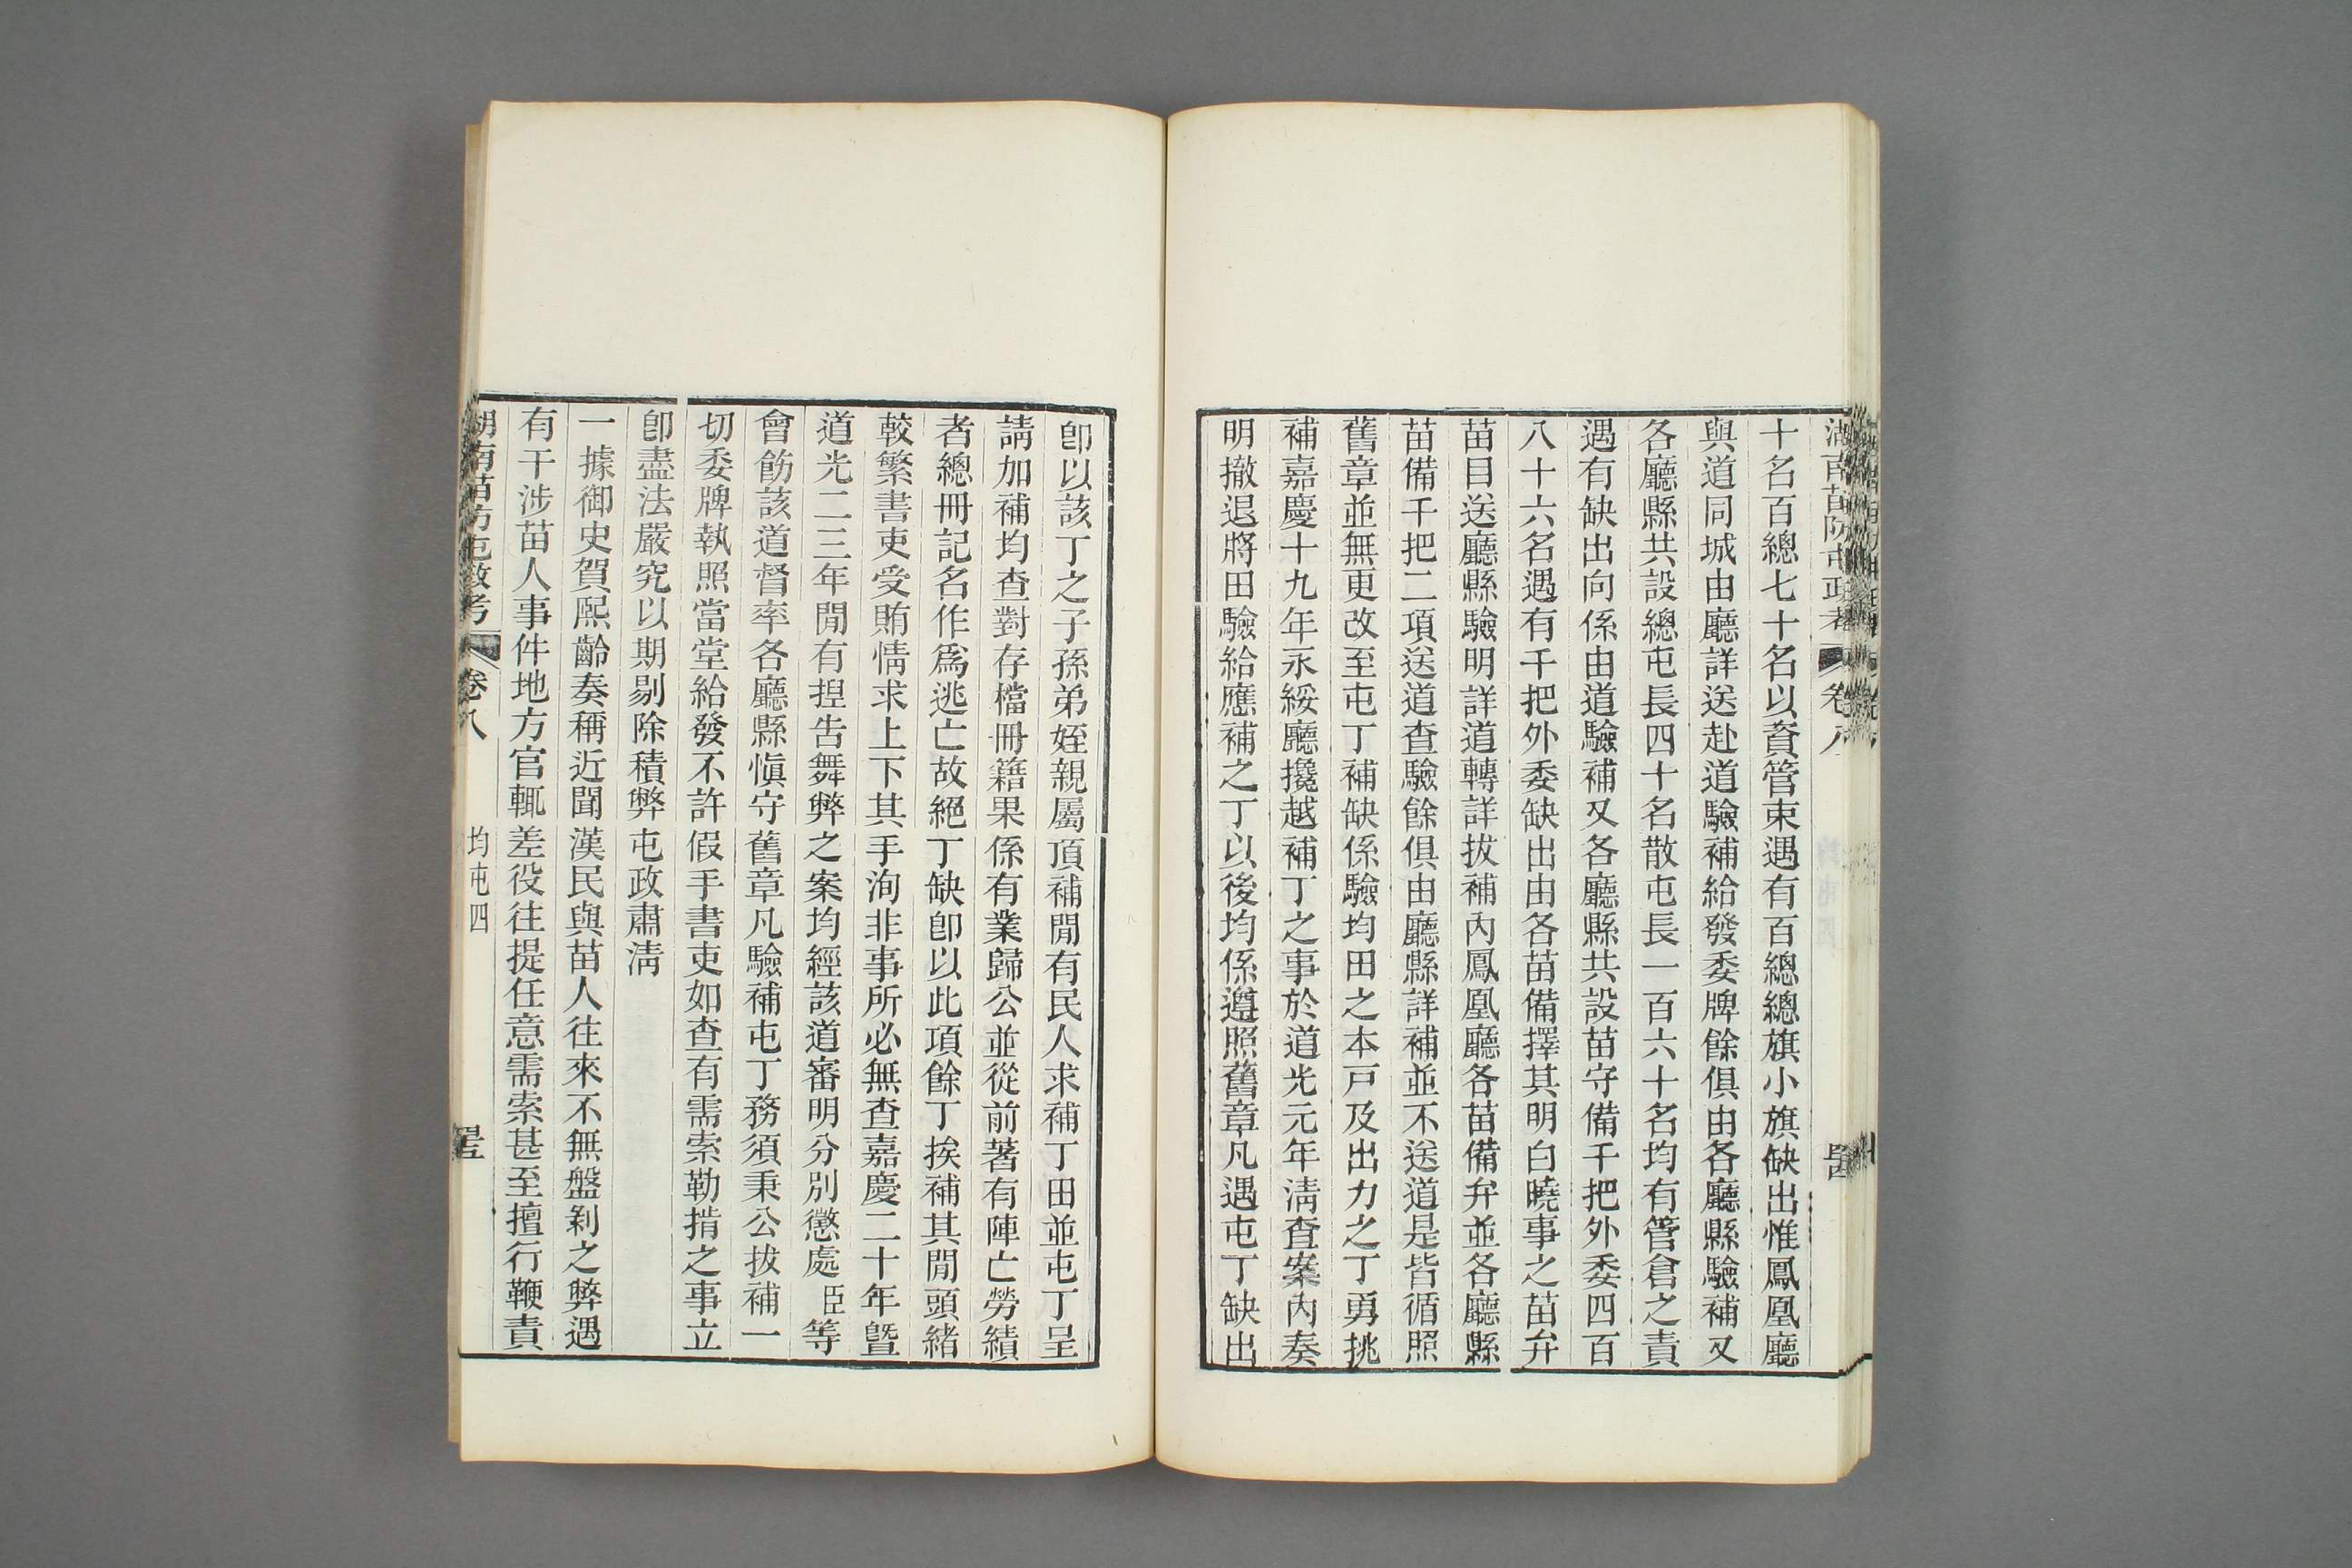 十名百總七十名以資管束遇有百總總旗小旗缺出惟鳳凰廳
與道同城由廳詳送赴道驗補給發委牌餘俱由各廳縣驗補又
各廳縣共設總屯長四十名散屯長一百六十名均有管倉之責
遇有缺出向係由道驗補又各廳縣共設苗守備千把外委四百
八十六名遇有千把外委缺出由各苗備擇其明白曉事之苗弁
苗目送廳縣驗明詳道轉詳拔補內鳳凰廳各苗備弁並各廳縣
苗備千把二項送道查驗餘俱由廳縣詳補並不送道是皆循照
舊章並無更改至屯丁補缺係驗均田之本戸及出力之丁勇挑
補嘉慶十九年永綏廳攙越補丁之事於道光元年淸查案內奏
明撤退將田驗給應補之丁以後均係遵照舊章凡遇屯丁缺出
卽以該丁之子孫弟姪親屬頂補閒有民人求補丁田並屯丁呈
請加補均查對存檔冊籍果係有業歸公並從前著有陣亡勞績
者總冊記名作爲逃亡故絕丁缺卽以此項餘丁挨補其閒頭緖
較繁書吏受賄情求上下其手洵非事所必無查嘉慶二十年曁
道光二三年閒有揑吿舞弊之案均經該道審明分別懲處臣等
會飭該道督率各廳縣愼守舊章凡驗補屯丁務須秉公拔補一
切委牌執照當堂給發不許假手書吏如查有需索勒掯之事立
卽盡法嚴究以期剔除積弊屯政肅淸
一據御史賀熙齡奏稱近聞漢民與苗人往來不無盤剝之弊遇
有干涉苗人事件地方官輒差役往提任意需索甚至擅行鞭責
湖南苗防屯政考 卷八 均屯四